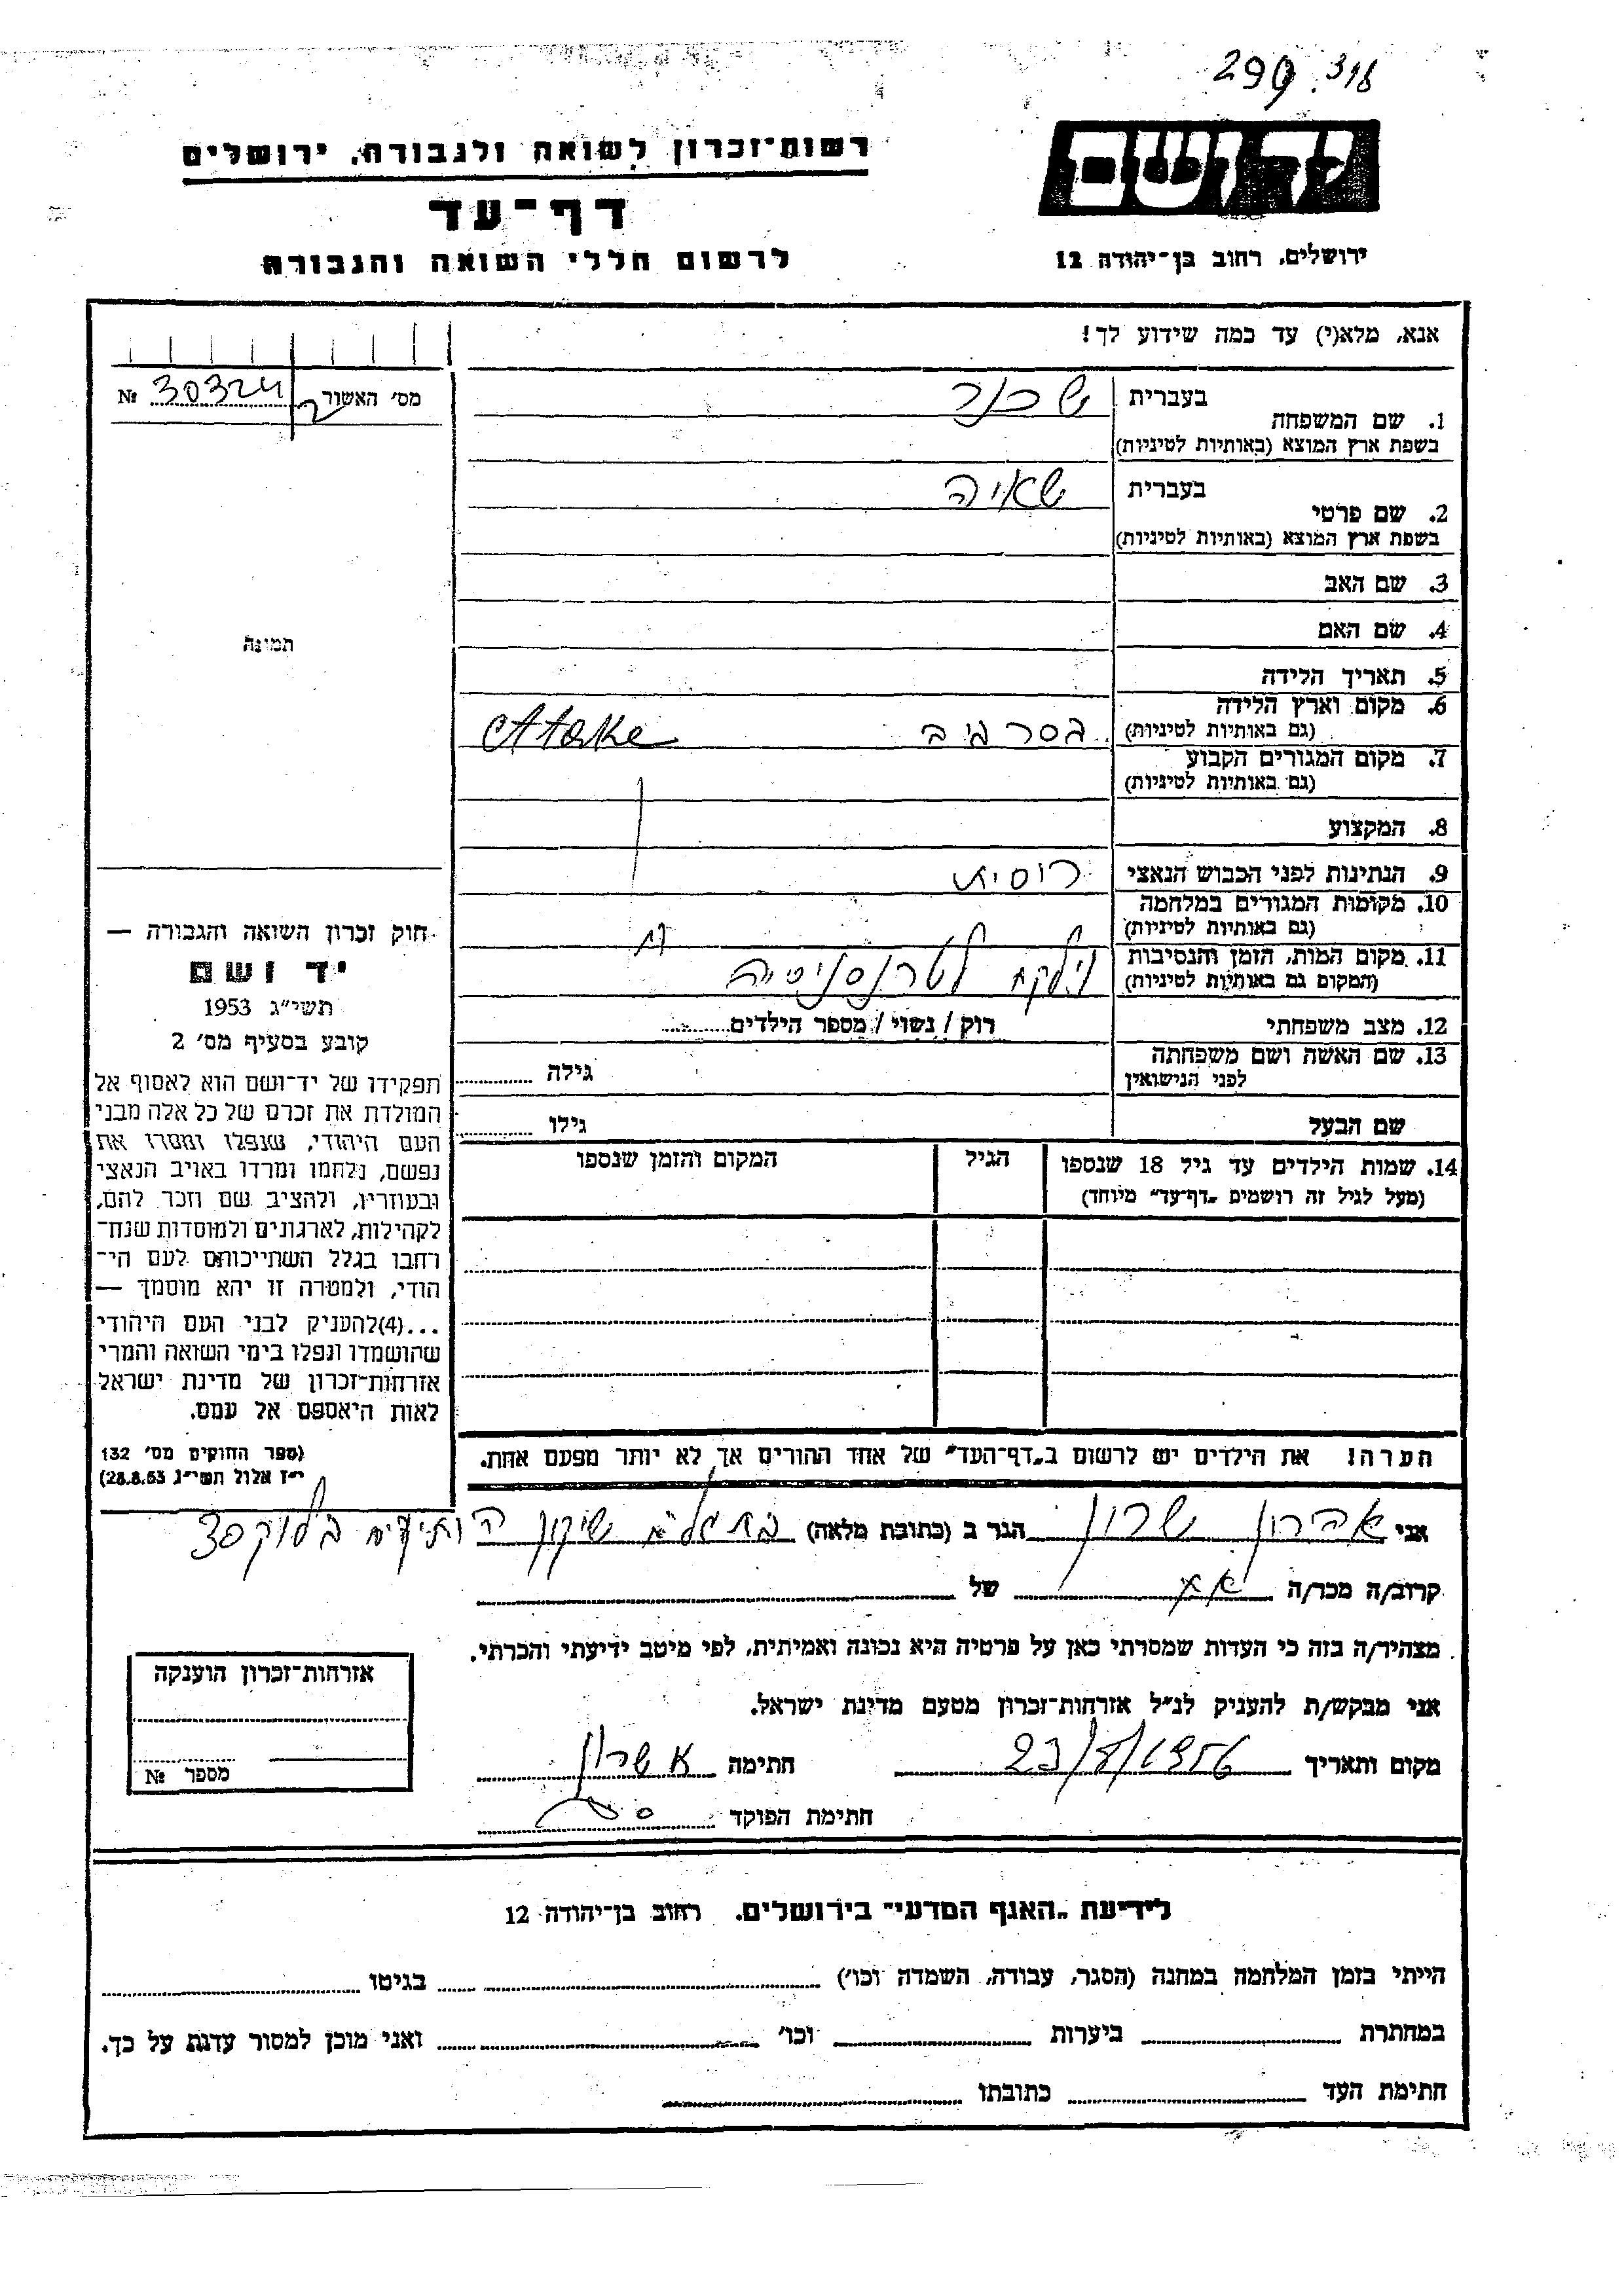 299. 318
רשות־זכרון לשואה ולגבורה, ירושלים
יד ושם
דף־עד
ירושלים, רחוב בן־יהודה 12
לרשום חללי השואה והגבורה
אנא, מלא(י) עד כמה שידוע לך!
מס׳ האשור № 30324
1. שם המשפחה
בעברית שכנר
בשפת ארץ המוצא (באותיות לטיניות)
2. שם פרטי
בעברית שאיה
בשפת ארץ המוצא (באותיות לטיניות)
3. שם האב
4. שם האם
תמונה
5. תאריך הלידה
6. מקום וארץ הלידה
(גם באותיות לטיניות) Atake
7. מקום המגורים הקבוע
(גם באותיות לטיניות)
8. המקצוע
9. הנתינות לפני הכבוש הנאצי רוסית
10. מקומות המגורים במלחמה
(גם באותיות לטיניות)
11. מקום המות, הזמן והנסיבות
(המקום גם באותיות לטיניות) נילקח לטרנסניסטריה
12. מצב משפחתי רוק / נשוי / מספר הילדים
13. שם האשה ושם משפחתה
לפני הנישואין גילה
שם הבעל גילו
14. שמות הילדים עד גיל 18 שנספו הגיל המקום והזמן שנספו
(מעל לגיל זה רושמים „דף־עד״ מיוחד)
חוק זכרון השואה והגבורה —
יד ושם
תשי״ג 1953
קובע בסעיף מס׳ 2
תפקידו של יד־ושם הוא לאסוף אל
המולדת את זכרם של כל אלה מבני
העם היהודי, שנפלו ומסרו את
נפשם, נלחמו ומרדו באויב הנאצי
ובעוזריו, ולהציב שם וזכר להם,
לקהילות, לארגונים ולמוסדות שנח־
רחבו בגלל השתייכותם לעם הי־
הודי, ולמטרה זו יהא מוסמך —
...(4)להעניק לבני העם היהודי
שהושמדו ונפלו בימי השואה והמרי
אזרחות־זכרון של מדינת ישראל
לאות היאספם אל עמם.
(ספר החוקים מס׳ 132
י״ז אלול תשי״ג 28.8.53)
הערה! את הילדים יש לרשום ב„דף־העד״ של אחד ההורים אך לא יותר מפעם אחת.
אני אהרון שרון הגר ב (כתובת מלאה) שיכון הותיקים בלוק 30
קרוב/ה מכר/ה של
מצהיר/ה בזה כי העדות שמסרתי כאן על פרטיה היא נכונה ואמיתית, לפי מיטב ידיעתי והכרתי.
אני מבקש/ת להעניק לנ״ל אזרחות־זכרון מטעם מדינת ישראל.
מקום ותאריך 23/8/1956 חתימה א שרון
חתימת הפוקד
אזרחות־זכרון הוענקה
מספר №
לידיעת „האגף המדעי״ בירושלים. רחוב בן־יהודה 12
הייתי בזמן המלחמה במחנה (הסגר, עבודה, השמדה וכו׳) בגיטו
במחתרת ביערות וכו׳ ואני מוכן למסור עדות על כך.
חתימת העד כתובתו